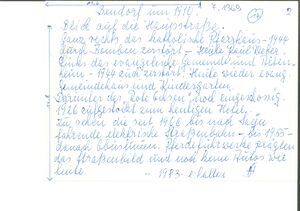 Bendorf um 1910. 7.1369 (12) 2
Blick auf die Hauptstraße.
Ganz rechts das katholische Pfarrheim - 1944
durch Bomben zerstört - Heute
Links das evangelische Gemeinde und
heim - 1944 auch zerstört. Heute wieder evang.
Gemeindehaus und Kindergarten.
Darunter der "Rote Ochsen", noch eingeschossig.
1926 aufgestockt zum heutigen Hotel.
Zu sehen die seit 1906 bis nach Sayn
fahrende elektrische Straßenbahn - bis 1955 -
danach Obusse. Pferdefuhrwerke prägten
das Straßenbild und noch keine Autos wie
heute. 1983 -